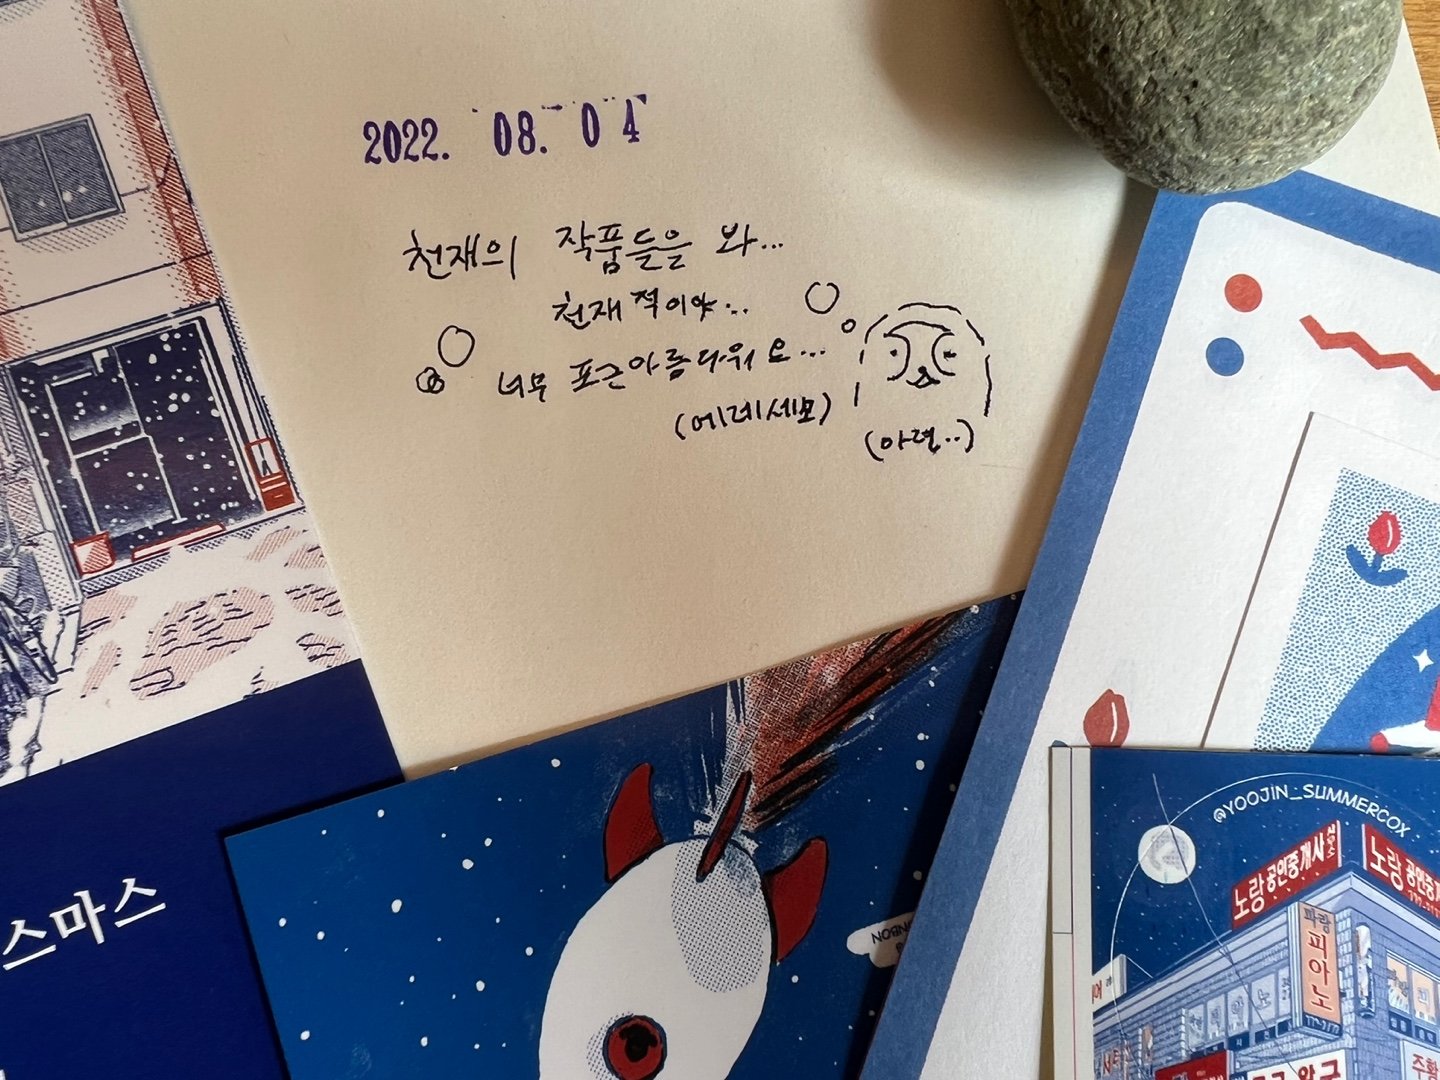 2022. 08. 04
천재의 작품들을 봐...
천재적이야...
너무 포근아름다워요...
(에레세모)
(아련..)
스마스
@YOOJIN_SUMMERCOX
노랑 공인중개사
노랑 공인중개
파랑
피아노
NBON
주황